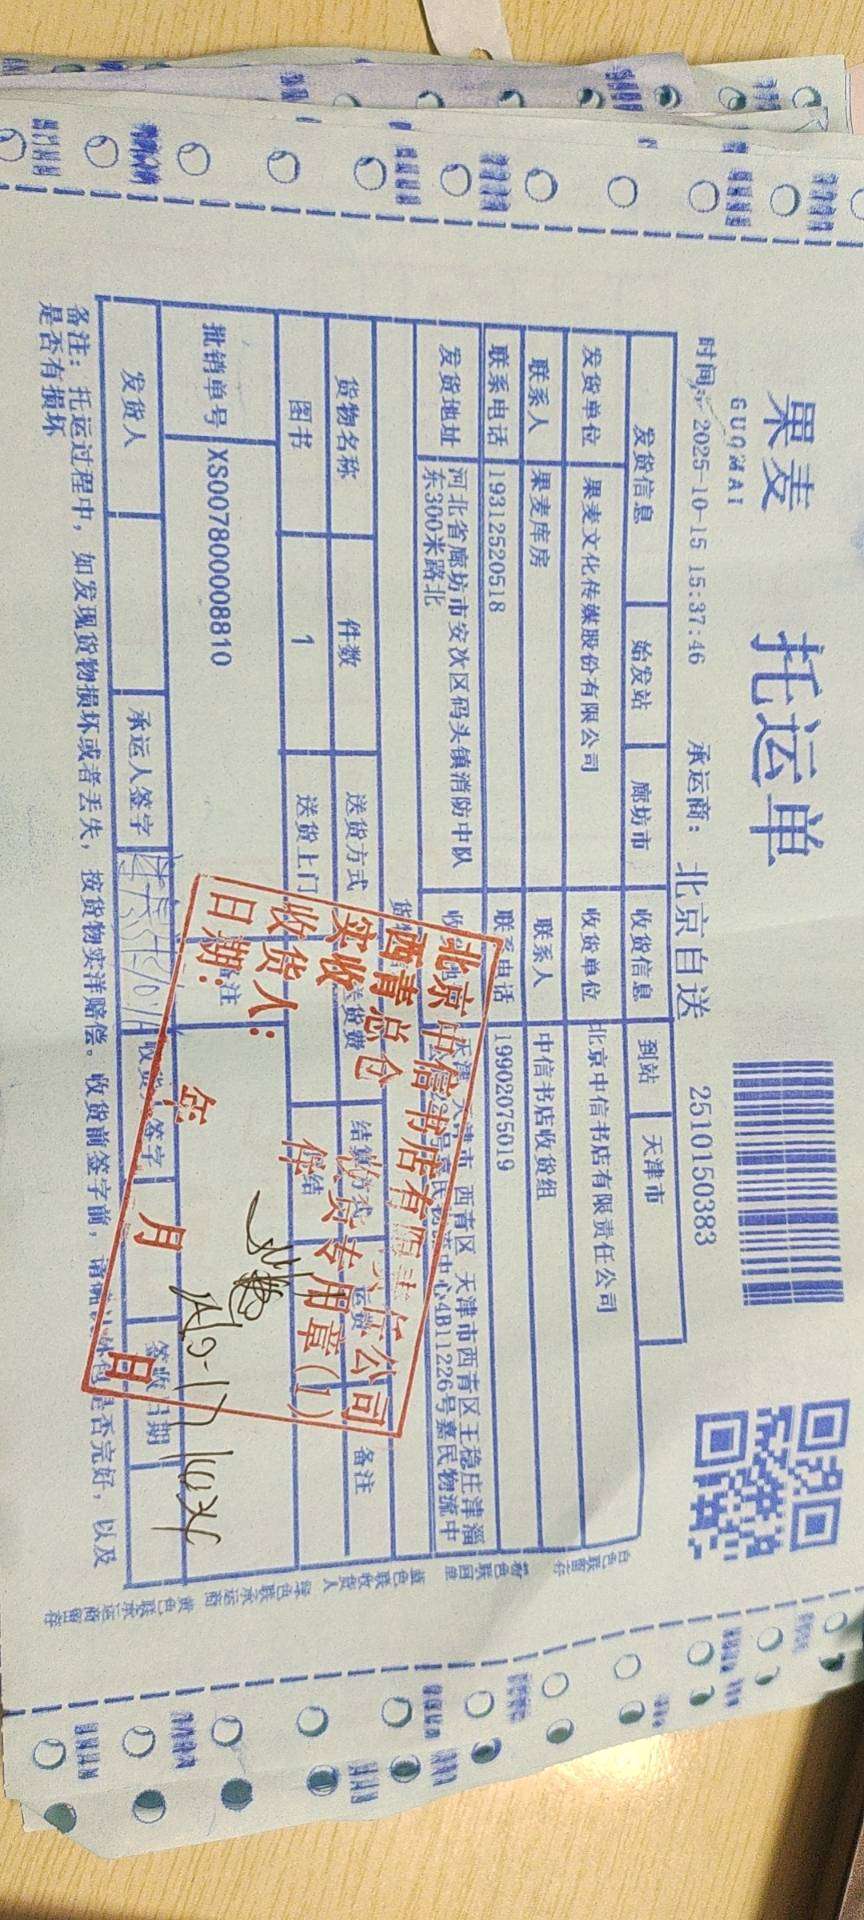 果麦
GUOMAI
托运单
时间: 2025-10-15 15:37:46 承运商: 北京自送 2510150383
发货信息 始发站 廊坊市 收货信息 到站 天津市
发货单位 果麦文化传媒股份有限公司 收货单位 北京中信书店有限责任公司
联系人 果麦库房 联系人 中信书店收货组
联系电话 19312520518 联系电话 19902075019
发货地址 河北省廊坊市安次区码头镇消防中队东300米路北
天津 天津市 西青区 天津市西青区王稳庄津淄
嘉民物流中心4B11226号嘉民物流中
货物名称 件数 送货方式 送货费 结算方式 运费 备注
图书 1 送货上门
批销单号 XS007800008810 备注
发货人 承运人签字 收货人签字 签收日期
备注: 托运过程中, 如发现货物损坏或者丢失, 按货物实洋赔偿。收货前签字前, 请确认外包是否完好, 以及
是否有损坏
北京中信书店有限责任公司
西青总仓 收货专用章(1)
实收 件
收货人:
日期: 年 月 日
白色联留存 粉色联回单 蓝色联收货人 绿色联承运商 黄色联承运商留存